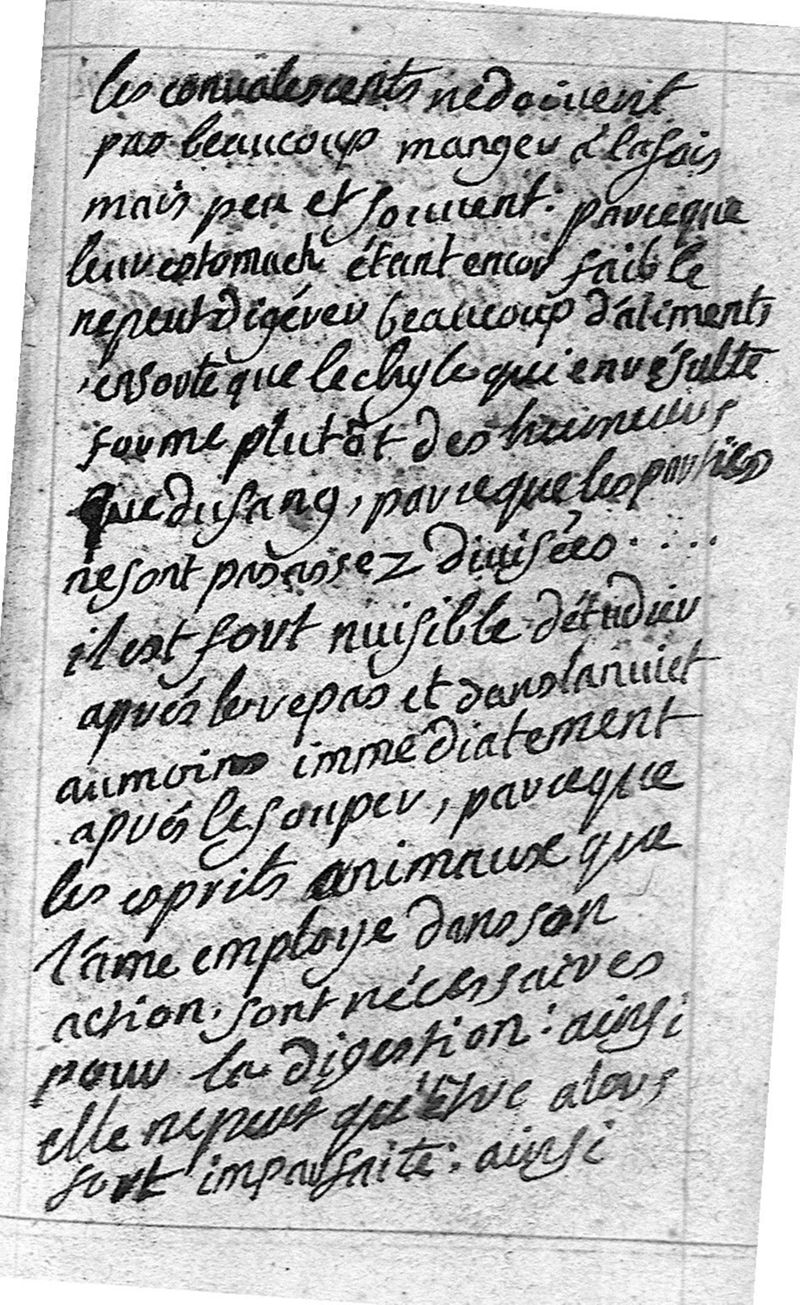 les convalescents ne doivent
pas beaucoup manger à la fois
mais peu et souvent: parceque
leur estomach étant encor faible
ne peut digérer beaucoup d'aliments
ensorte que le chyle qui en résulte
forme plutôt des humeurs
que du sang, parceque les parties
ne sont pas assez divisées.....
il est fort nuisible d'étudier
aprés le repas et dans la nuiet
au moins immédiatement
aprés le souper, parceque
les esprits animaux que
l'ame employe dans son
action, sont nécessaires
pour la digestion: ainsi
elle ne peut qu'être alors
fort imparfaite: ainsi